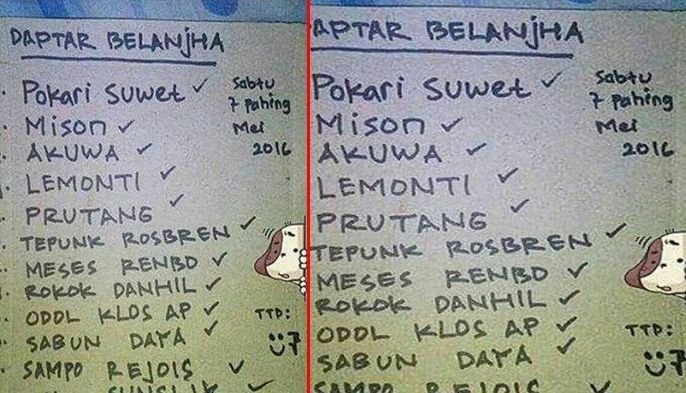 DAPTAR BELANJHA
Pokari Suwet
Sabtu
7 pahing
Mei
2016
Mison
AKUWA
LEMONTI
PRUTANG
TEPUNK ROSBREN
MESES RENBO
ROKOK DANHIL
ODOL KLOS AP
TTD:
SABUN DAYA
SAMPO REJOIS
APTAR BELANJHA
Pokari Suwet
Sabtu
7 pahing
Mei
2016
MISON
AKUWA
LEMONTI
PRUTANG
TEPUNK ROSBREN
MESES RENBO
ROKOK DANHIL
ODOL KLOS AP
TTD:
SABUN DAYA
SAMPO REJOIS